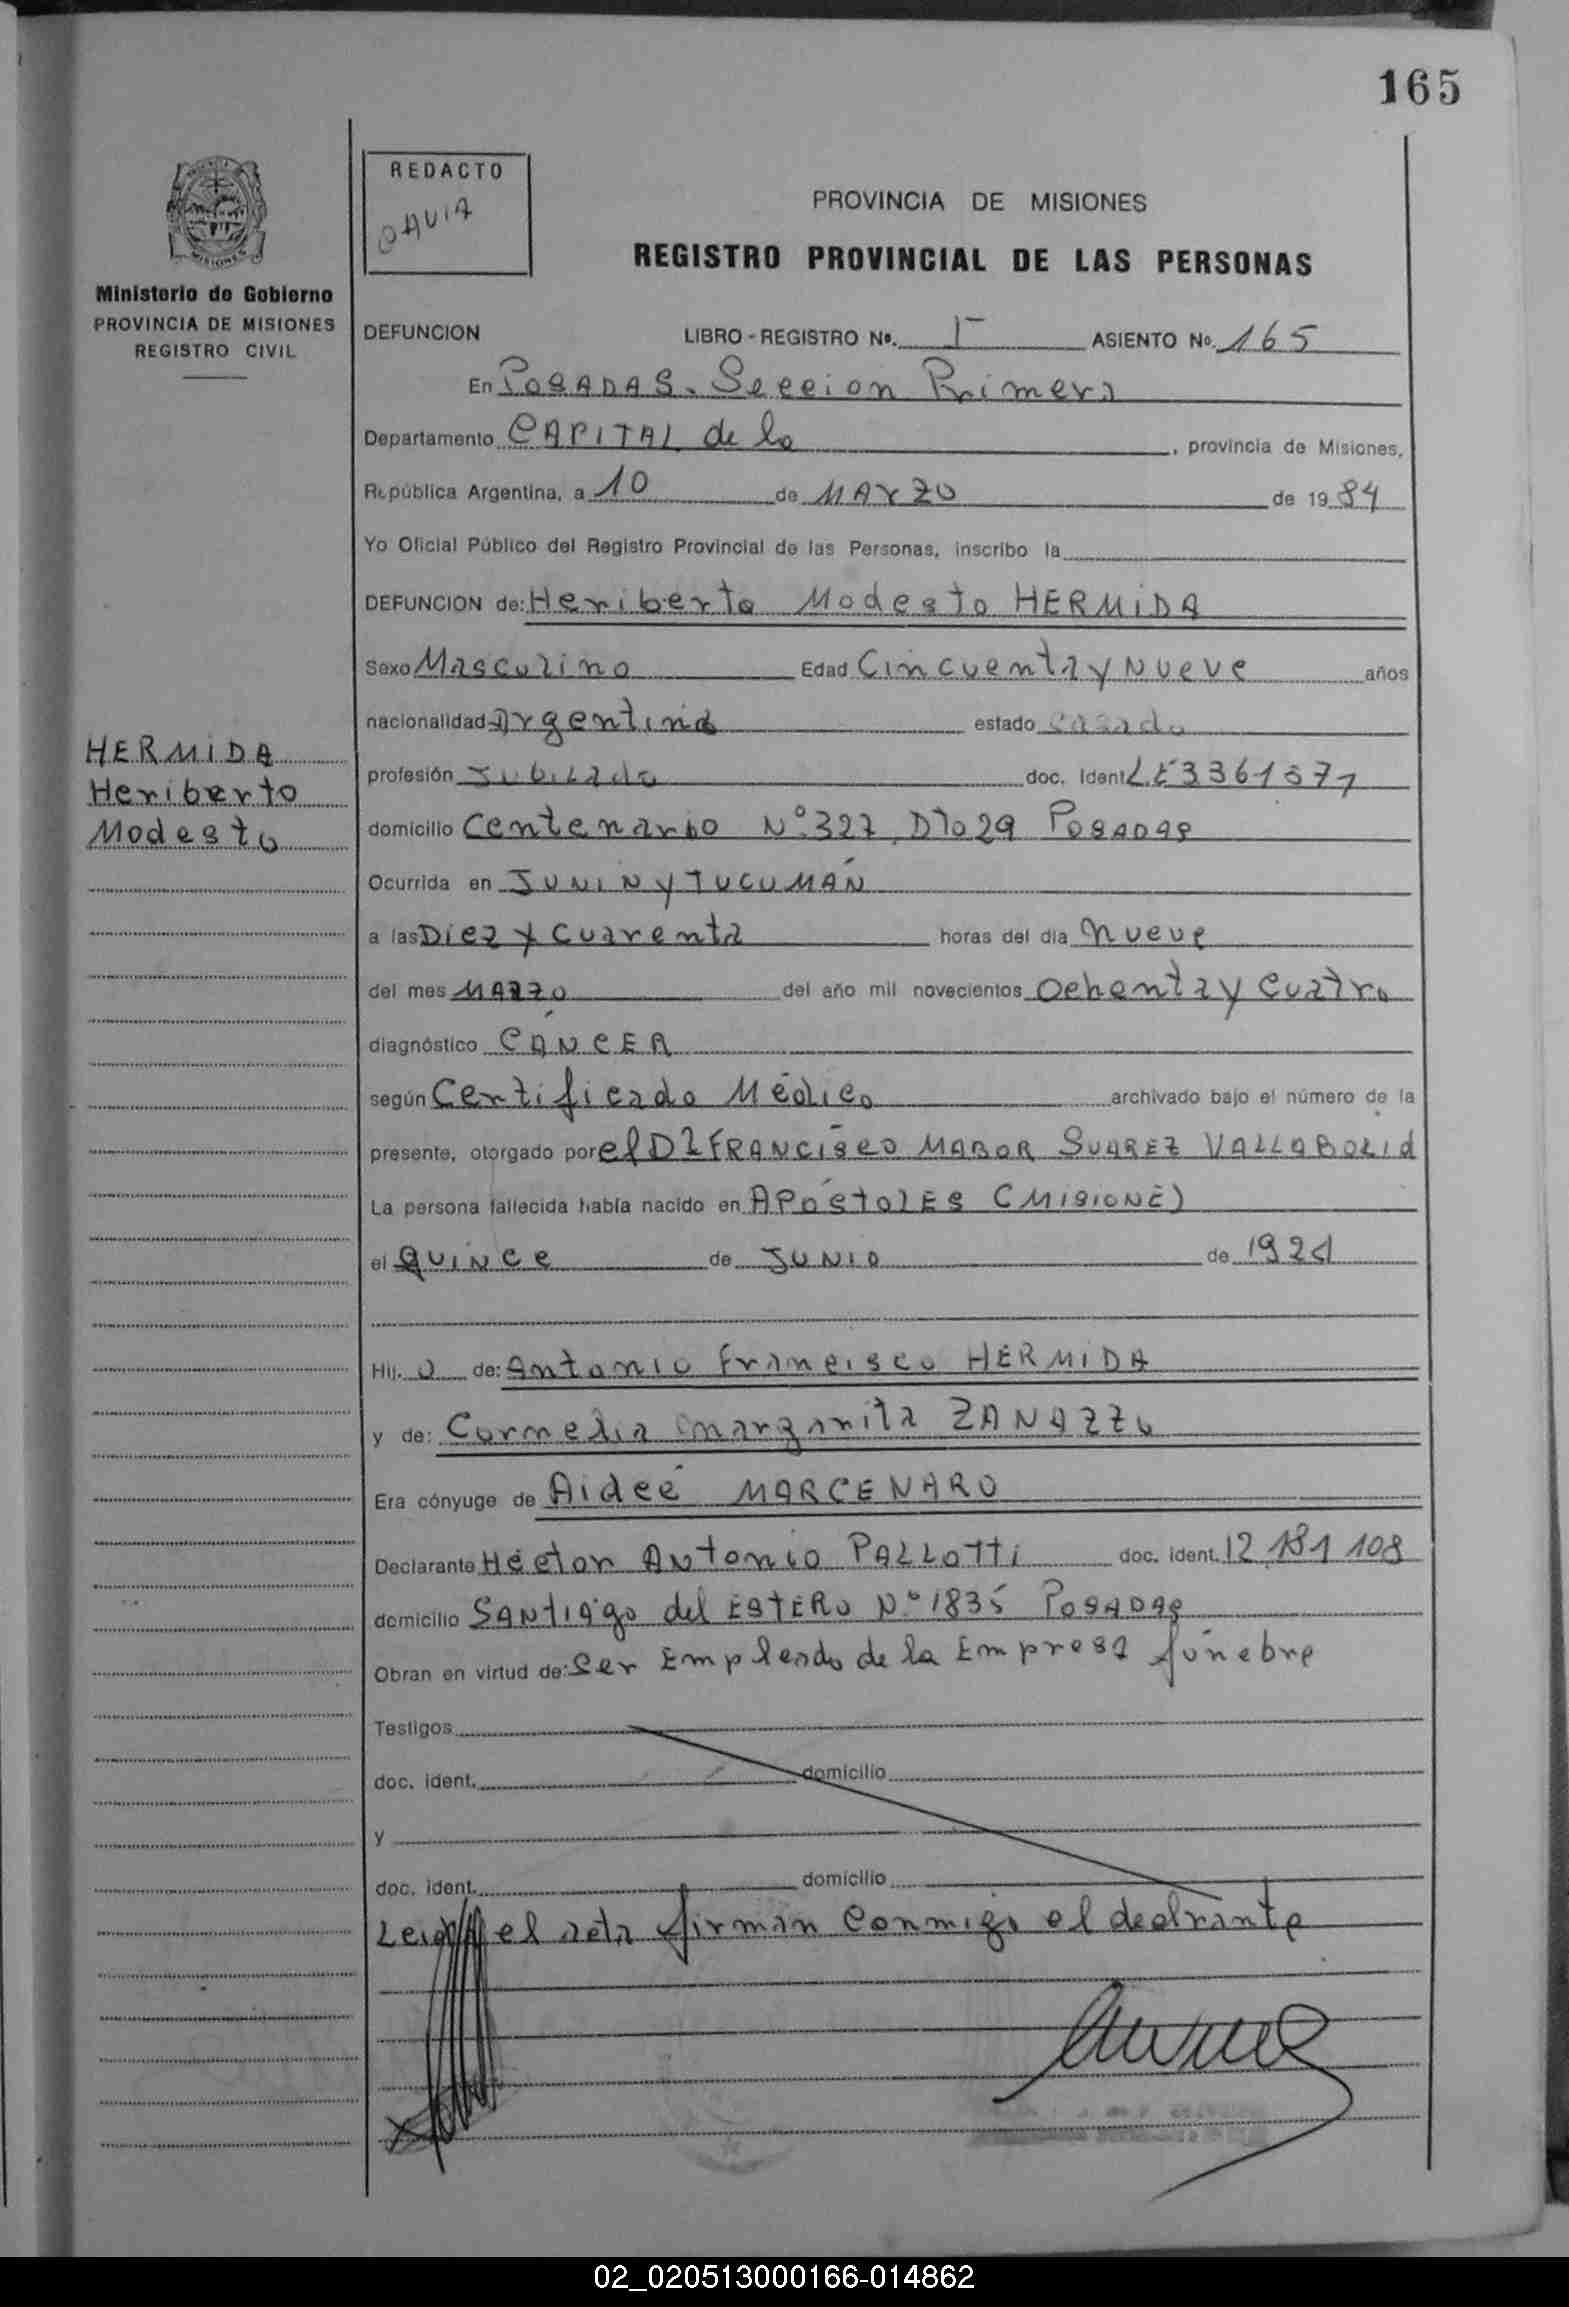 165
REDACTO
PROVINCIA DE MISIONES
REGISTRO PROVINCIAL DE LAS PERSONAS
Ministerio de Gobierno
PROVINCIA DE MISIONES
REGISTRO CIVIL
DEFUNCION LIBRO - REGISTRO No. I ASIENTO No. 165
En POSADAS. Seccion Primera
Departamento CAPITAL de la , provincia de Misiones,
República Argentina, a 10 de MArzo de 1984
Yo Oficial Público del Registro Provincial de las Personas, inscribo la
DEFUNCION de: Heriberto Modesto HERMIDA
Sexo Masculino Edad Cincuenta y Nueve años
nacionalidad Argentina estado casado
HERMIDA
Heriberto
Modesto
profesión Jubilado doc. Ident LE 3361571
domicilio Centenario Nº 327 Dto 29 POSADAS
Ocurrida en JUNIN y TUCUMÁN
a las Diez y Cuarenta horas del dia nueve
del mes MARZO del año mil novecientos Ochenta y Cuatro
diagnóstico CÁNCER
según Certificado Médico archivado bajo el número de la
presente, otorgado por el DR FRANCISCO MABOR SUAREZ VALLABOLId
La persona fallecida había nacido en APÓStolES (MISIONE)
el QUINCE de JUNIO de 1924
Hij. o de: Antonio Francisco HERMIDA
y de: Cornelia Margarita ZANAZZO
Era cónyuge de Aideé MARCENARO
Declarante Héctor ANtonio PALLOTTi doc. ident. 12 181 108
domicilio SANtiago del ESTERO Nº 1835 POSADAS
Obran en virtud de: Ser Empleado de la Empresa fúnebre
Testigos
doc. ident. domicilio
y
doc. ident. domicilio
Leida el acta firman conmigo el declrante
02_020513000166-014862